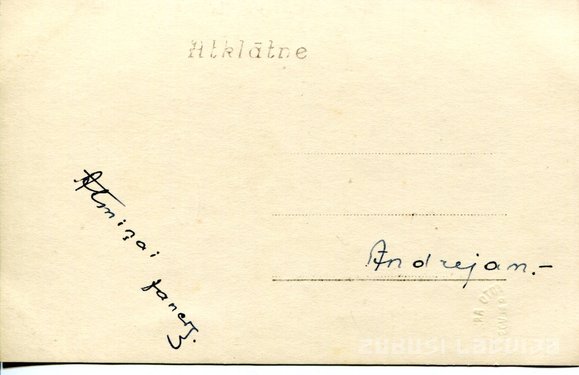 Atklātne
Atmiņai
Andrejam.-
zudusi latvija